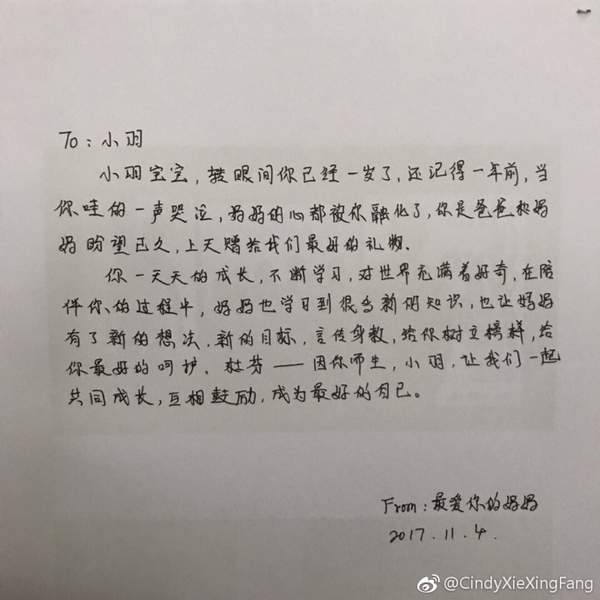 To：小羽
小羽宝宝，转眼间你已经一岁了，还记得一年前，当
你哇的一声哭泣，妈妈的心都被你融化了，你是爸爸和妈
妈盼望已久，上天赠给我们最好的礼物。
你一天天的成长，不断学习，对世界充满着好奇，在陪
伴你的过程中，妈妈也学习到很多新的知识，也让妈妈
有了新的想法，新的目标，言传身教，给你树立榜样，给
你最好的呵护。杜芳——因你而生，小羽，让我们一起
共同成长，互相鼓励，成为最好的自己。
From：最爱你的妈妈
2017.11.4.
@CindyXieXingFang